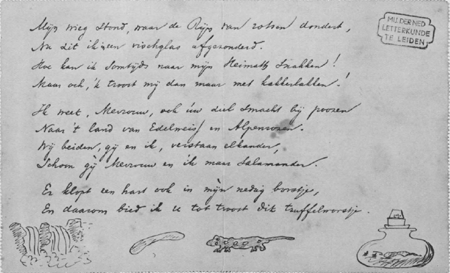 Mijn wieg stond, waar de Rijn van rotsen dondert,
Nu zit ik in een vischglas afgezonderd.
Hoe kan ik somtijds naar mijn Heimath snakken!
Maar och, 'k troost mij dan maar met kakkerlakken!
Ik weet, Mevrouw, ook uw ziel smacht bij poozen
Naar 't land van Edelweiss en Alpenrozen.
Wij beiden, gij en ik, verstaan elkander,
Schoon gij Mevrouw en ik maar Salamander.
Er klopt een hart ook in mijn nedrig borstje,
En daarom bied ik u tot troost dit truffelworstje.
MIJ DER NED
LETTERKUNDE
TE LEIDEN